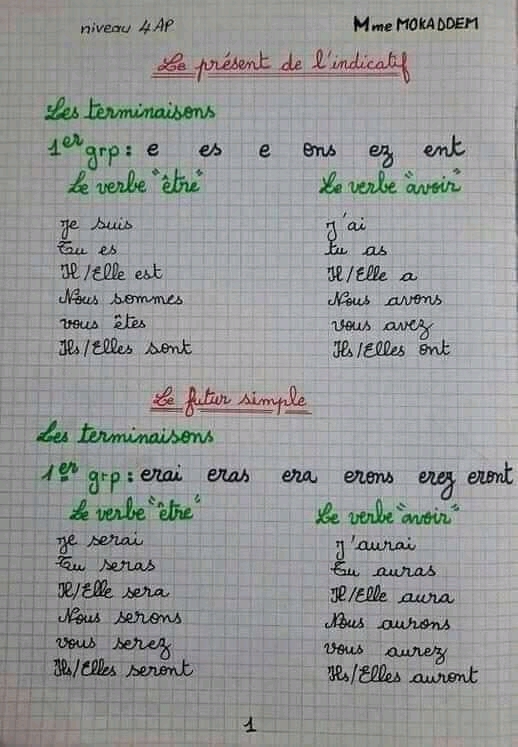 niveau 4AP Mme MOKADDEM
Le présent de l'indicatif
Les terminaisons
1er grp : e es e ons ez ent
Le verbe "être" Le verbe "avoir"
Je suis J'ai
Tu es tu as
Il/Elle est Il/Elle a
Nous sommes Nous avons
vous êtes vous avez
Ils/Elles sont Ils/Elles ont
Le futur simple
Les terminaisons
1er grp : erai eras era erons erez eront
Le verbe "être" Le verbe "avoir"
Je serai J'aurai
Tu seras Tu auras
Il/Elle sera Il/Elle aura
Nous serons Nous aurons
vous serez vous aurez
Ils/Elles seront Ils/Elles auront
1